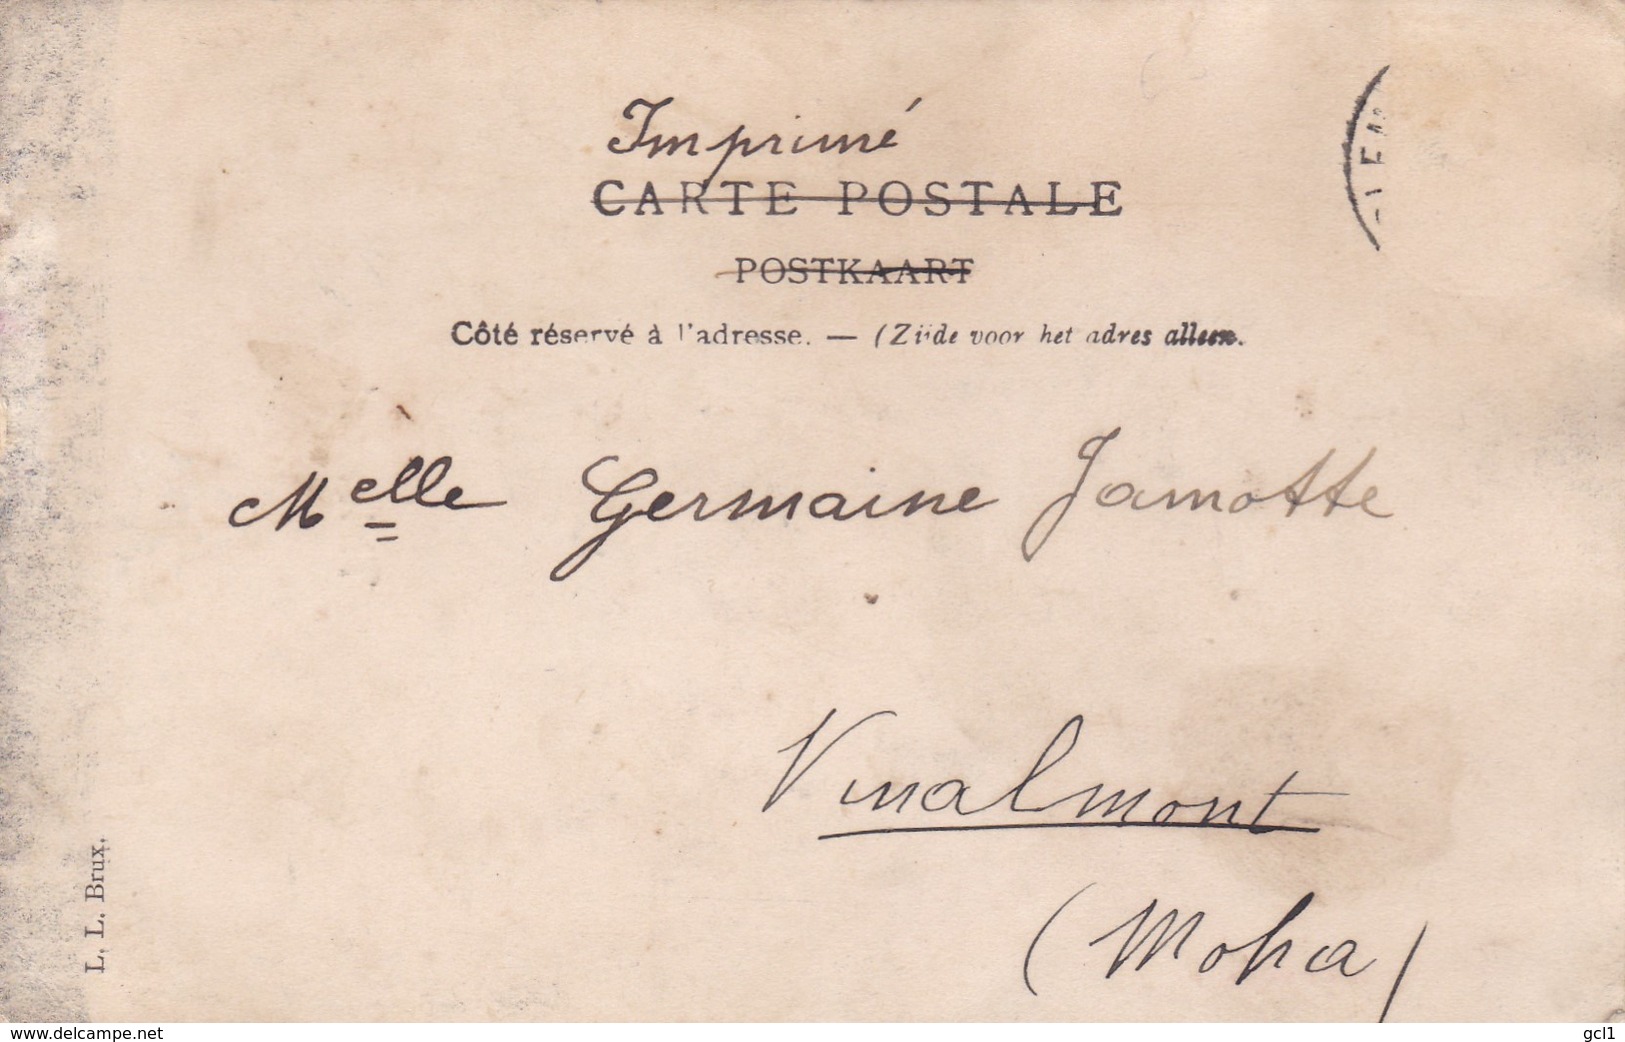 Imprimé
CARTE POSTALE
POSTKAART
Côté réservé à l'adresse. — (Zijde voor het adres alleen.
Melle Germaine Jamotte
Vinalmont
(Moha)
L. L. Brux.
www.delcampe.net
gcl1